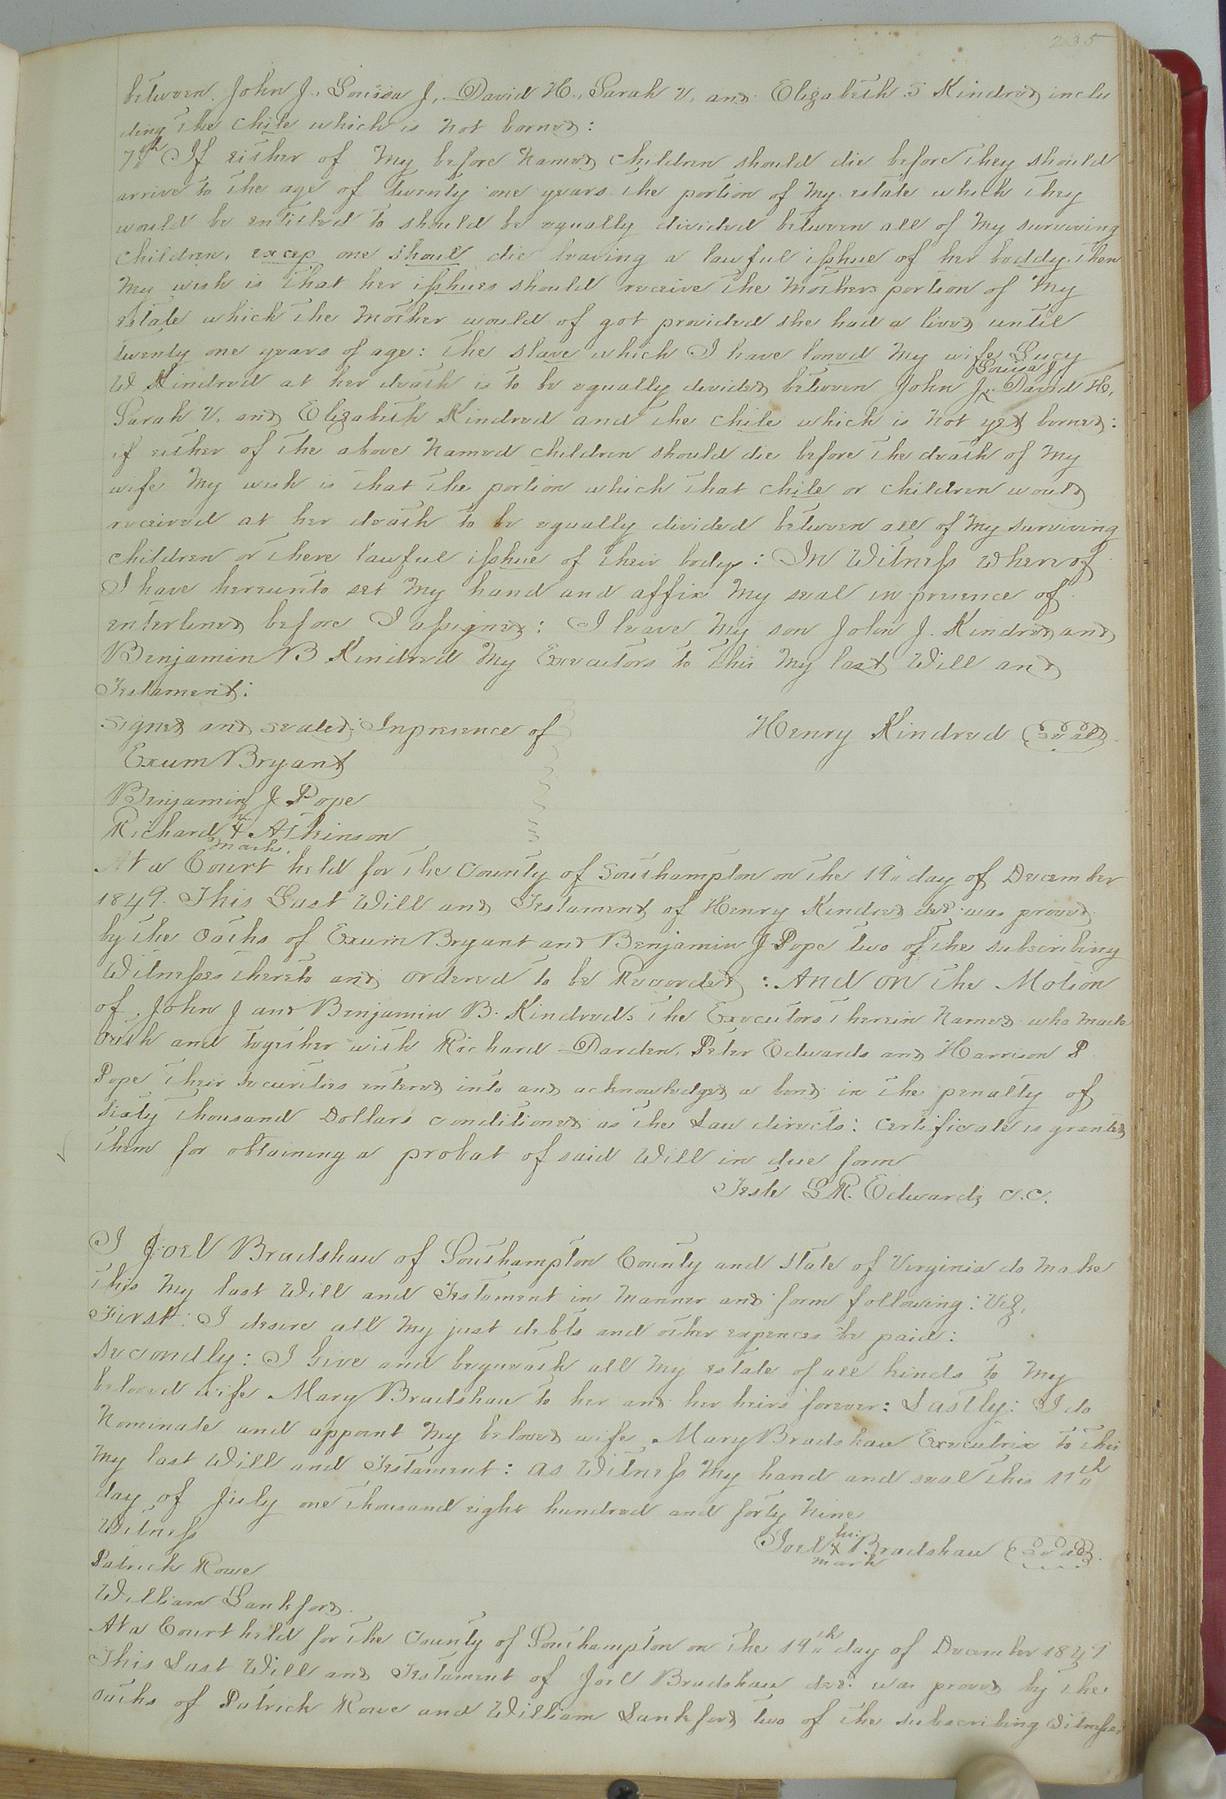 235
between John J., Louisa J., David H., Sarah V. and Elizabeth S Kindred inclu
ding the chile which is not borned:
7th If either of My before Named Children should die before they should
arrive to the age of twenty one years the portion of My estate which they
would be entitled to should be equally divided between all of My surviving
children, excep one shoul die leaving a lawful isshue of her boddy then
My wish is that her isshues should receive the Mothers portion of My
estate which the Mother would of got provided she had a lived until
twenty one years of age: the slave which I have loned My wife Lucy
W Kindred at her death is to be equally divided between John J, Louisa J, David H.
Sarah V. and Elizabeth Kindred and the chile which is Not yet borned:
if either of the above Named children should die before the death of My
wife My wish is that the portion which that chile or children would
received at her death to be equally divided between all of My surviving
children or there lawful isshue of their body: In Witness Wherof
I have hereunto set My hand and affix My seal in presence of
enterlined before I assigned: I leave My son John J. Kindred and
Benjamin B Kindred My Executors to this My last Will and
Testament:
Signed and sealed Inpresence of Henry Kindred (Seal)
Exum Bryant
Benjamin J Pope
his
Richard X Atkinson
mark
At a Court held for the County of Southampton on the 19th day of December
1849. This Last Will and Testament of Henry Kindred decd was proved
by the Oaths of Exum Bryant and Benjamin J Pope two of the subscribing
Witnesses thereto and ordered to be Recorded: And on the Motion
of John J and Benjamin B. Kindred the Executors therein Named who made
Oath and together with Richard Darden, Peter Edwards and Harrison P
Pope their securities entered into and acknowledged a bond in the penalty of
Sixty thousand Dollars conditioned as the Law directs: certificate is granted
them for obtaining a probat of said Will in due form
Teste L R. Edwards C.C.
I Joel Bradshaw of Southampton County and State of Virginia do Make
this My last Will and Testament in Manner and form following: Viz,
First: I desire all My just debts and other expences be paid:
Secondly: I Give and bequeath all My estate of all kinds to My
beloved wife Mary Bradshaw to her and her heirs forever: Lastly: I do
Nominate and appoint My beloved wife Mary Bradshaw Executrix to this
My last Will and Testament: As Witness My hand and seal this 11th
day of July one thousand eight hundred and forty Nine
Witness his
Joel X Bradshaw (Seal)
mark
Patrick Rowe
William Lankford
At a Court held for the County of Southampton on the 19th day of December 1849
This Last Will and Testament of Joel Bradshaw decd was proved by the
Oaths of Patrick Rowe and William Lankford two of the subscribing Witnesses